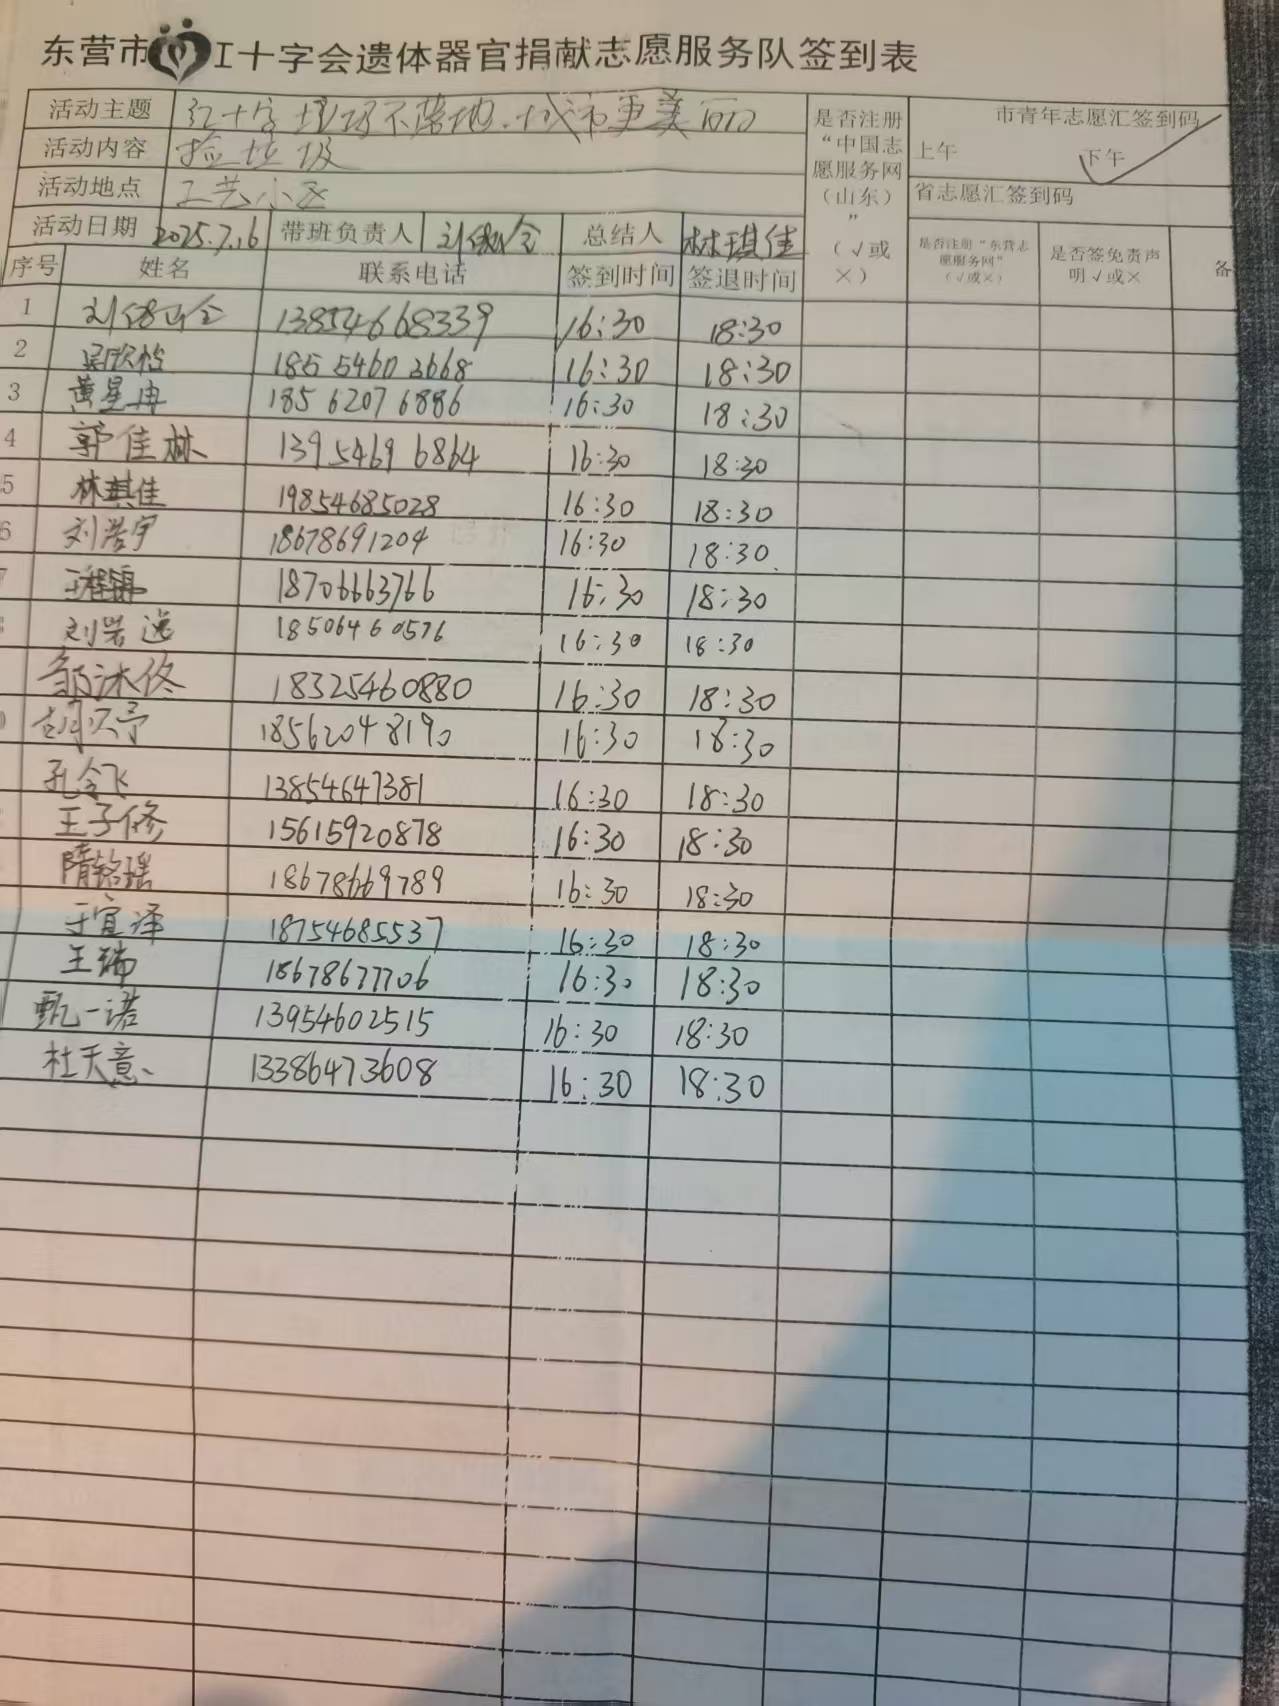 东营市工十字会遗体器官捐献志愿服务队签到表
活动主题 红十字 垃圾不落地.城市更美丽
活动内容 捡垃圾
活动地点 工艺小区
活动日期 2025.7.16 带班负责人 总结人 林琪佳
是否注册“中国志愿服务网(山东)”(√或×)
市青年志愿汇签到码
上午 下午 √
省志愿汇签到码
序号 姓名 联系电话 签到时间 签退时间 是否注册“东营志愿服务网”(√或×) 是否签免责声明√或× 备
1 13854668339 16:30 18:30
2 18554603668 16:30 18:30
3 黄星冉 18562076886 16:30 18:30
4 郭佳林 13954696864 16:30 18:30
5 林琪佳 19854685028 16:30 18:30
6 刘浩宇 18678691204 16:30 18:30
7 18706663766 16:30 18:30
刘岩逸 18506460576 16:30 18:30
邹沐佟 18325460880 16:30 18:30
18562048190 16:30 18:30
孔令飞 13854647381 16:30 18:30
王子修 15615920878 16:30 18:30
隋铭瑶 18678669789 16:30 18:30
于宜泽 18754685537 16:30 18:30
王瑞 18678677706 16:30 18:30
甄一诺 13954602515 16:30 18:30
杜天意 13386473608 16:30 18:30